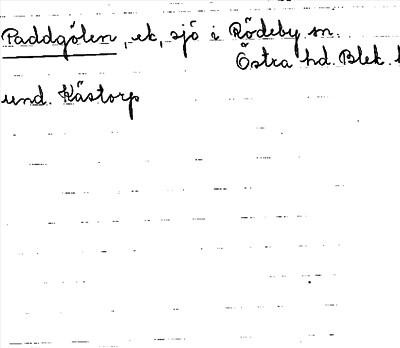 Paddgölen, ek, sjö i Rödeby sn.
Östra hd. Blek.
und. Kåstorp